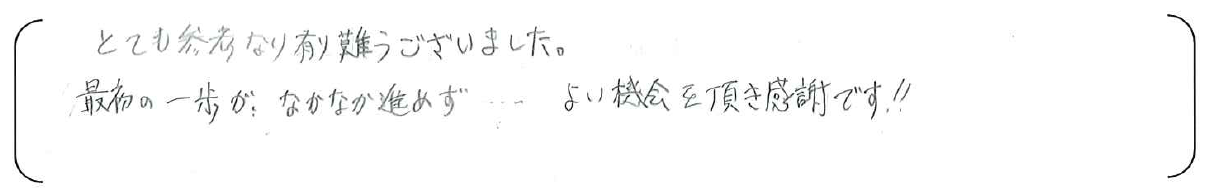 とても参考なり有り難うございました。
最初の一歩が、なかなか進めず … よい機会を頂き感謝です!!